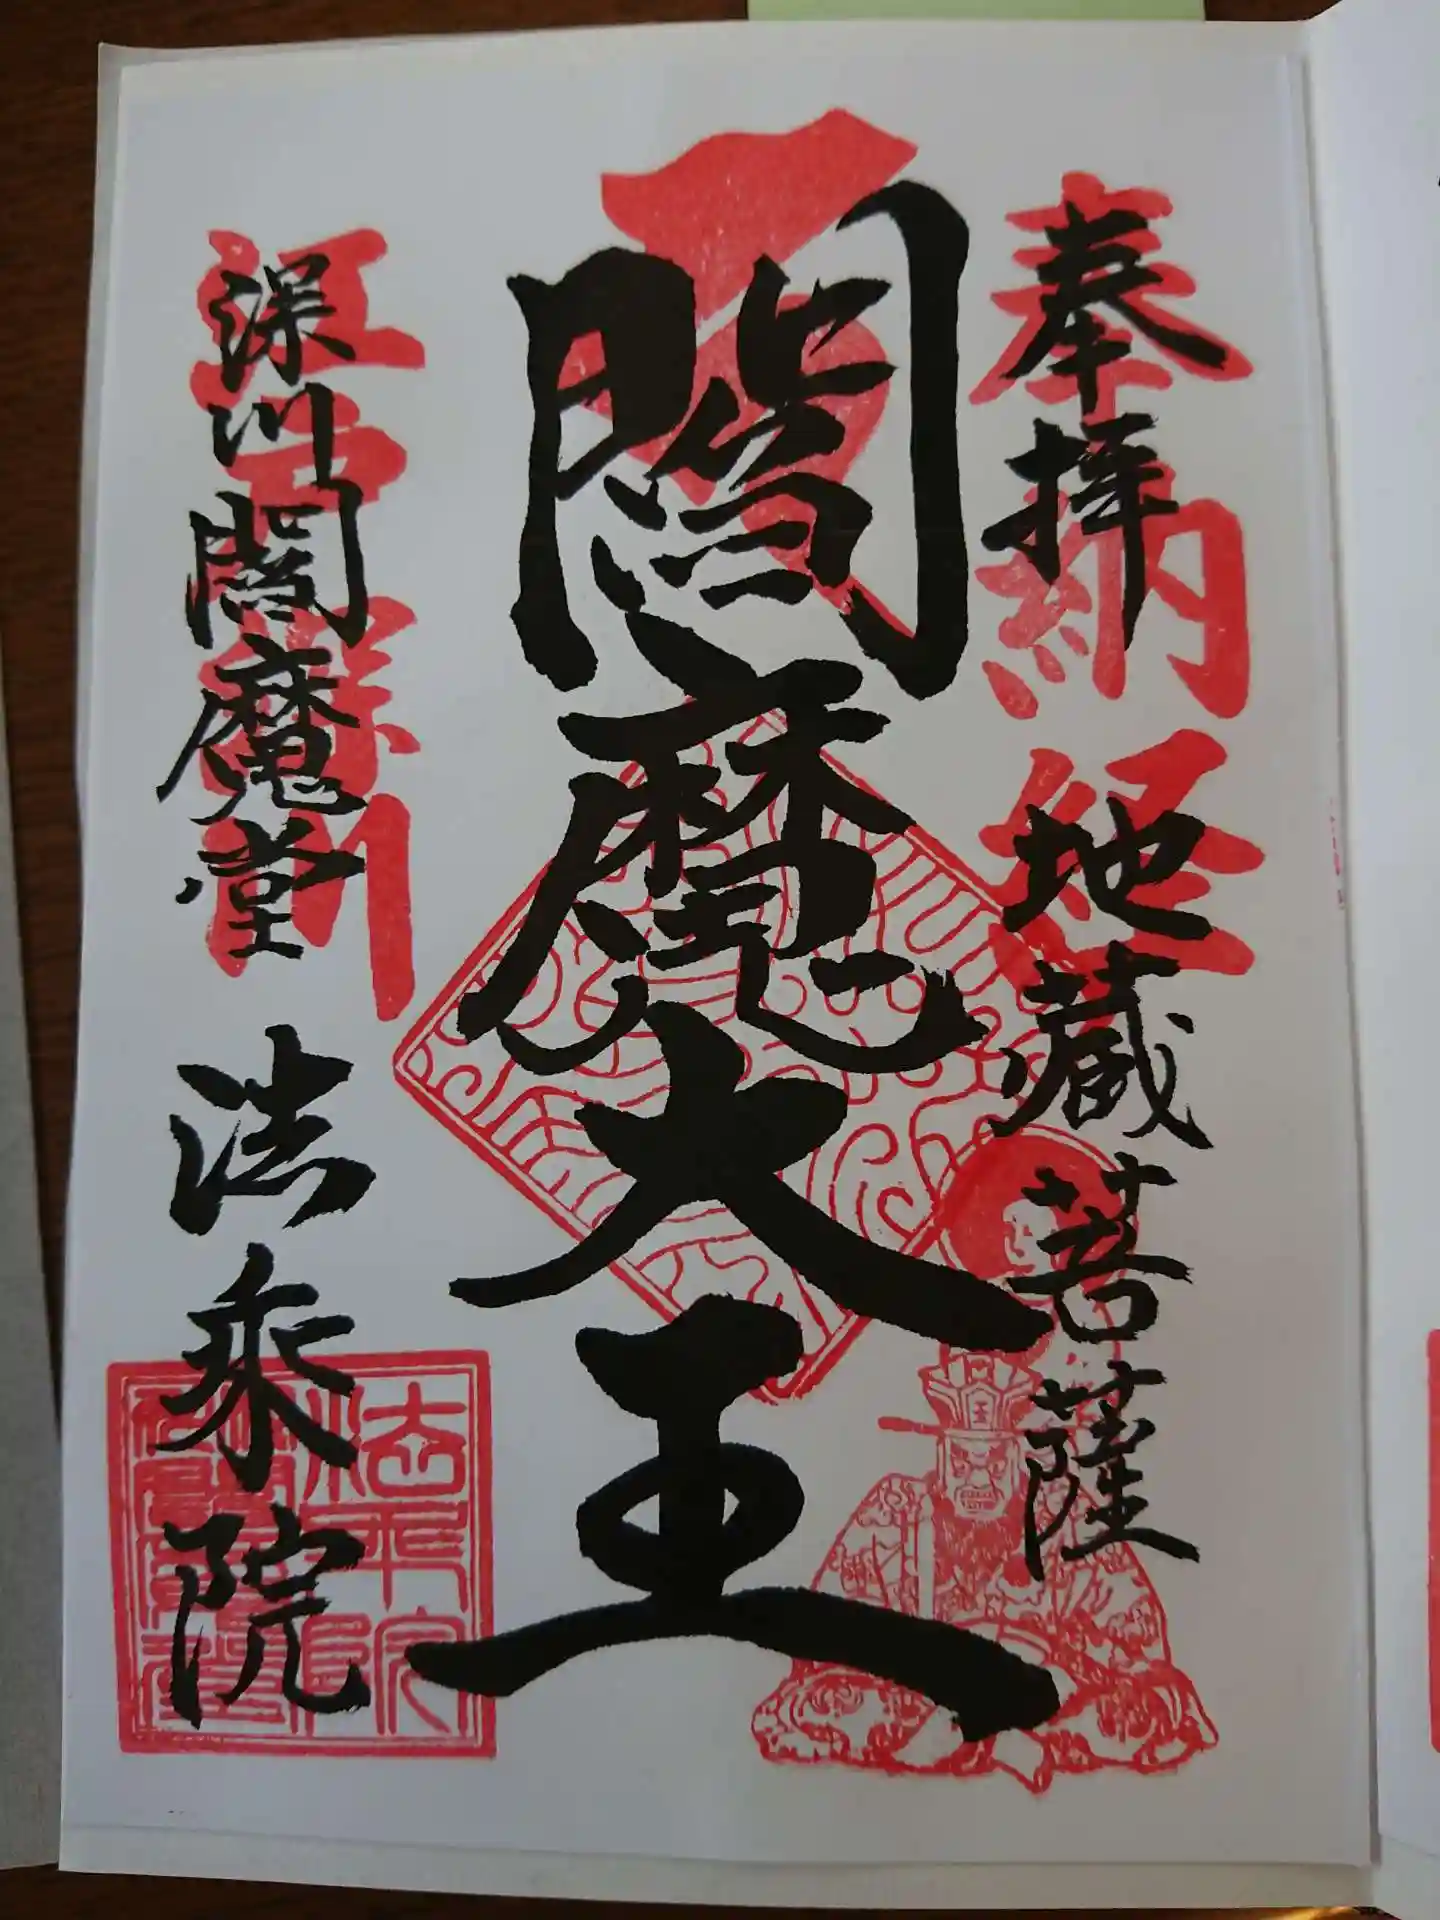 奉拝 地蔵菩薩
奉納経
閻魔大王
深川閻魔堂 法乗院
江戸深川
法乗院
王